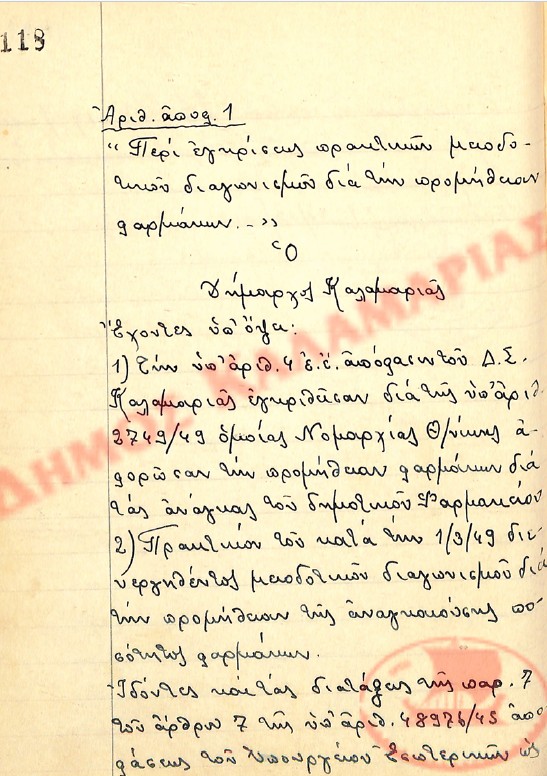 118
Ἀριθ. ἀποφ. 1
“Περί ἐγκρίσεως πρακτικοῦ μειοδο-
τικοῦ διαγωνισμοῦ διά τήν προμήθειαν
φαρμάκων.-”
Ὁ
Δήμαρχος Καλαμαριᾶς
Ἔχοντες ὑπ' ὄψει:
1) Τήν ὑπ' ἀριθ. 4 ἐ.ἔ. ἀπόφασιν τοῦ Δ.Σ.
Καλαμαριᾶς ἐγκριθεῖσαν διά τῆς ὑπ' ἀριθ.
2749/49 ὁμοίας Νομαρχίας Θ/νίκης ἀ-
φορῶσαν τήν προμήθειαν φαρμάκων διά
τάς ἀνάγκας τοῦ δημοτικοῦ Φαρμακείου
2) Πρακτικόν τοῦ κατά τήν 1/3/49 διε-
νεργηθέντος μειοδοτικοῦ διαγωνισμοῦ διά
τήν προμήθειαν τῆς ἀναγκαιούσης πο-
σότητος φαρμάκων.
Ἰδόντες καί τάς διατάξεις τῆς παρ. 7
τοῦ ἄρθρου 7 τῆς ὑπ' ἀριθ. 48976/45 ἀπο
φάσεως τοῦ Ὑπουργείου Ἐσωτερικῶν ὡς
ΔΗΜΟΣ ΚΑΛΑΜΑΡΙΑΣ